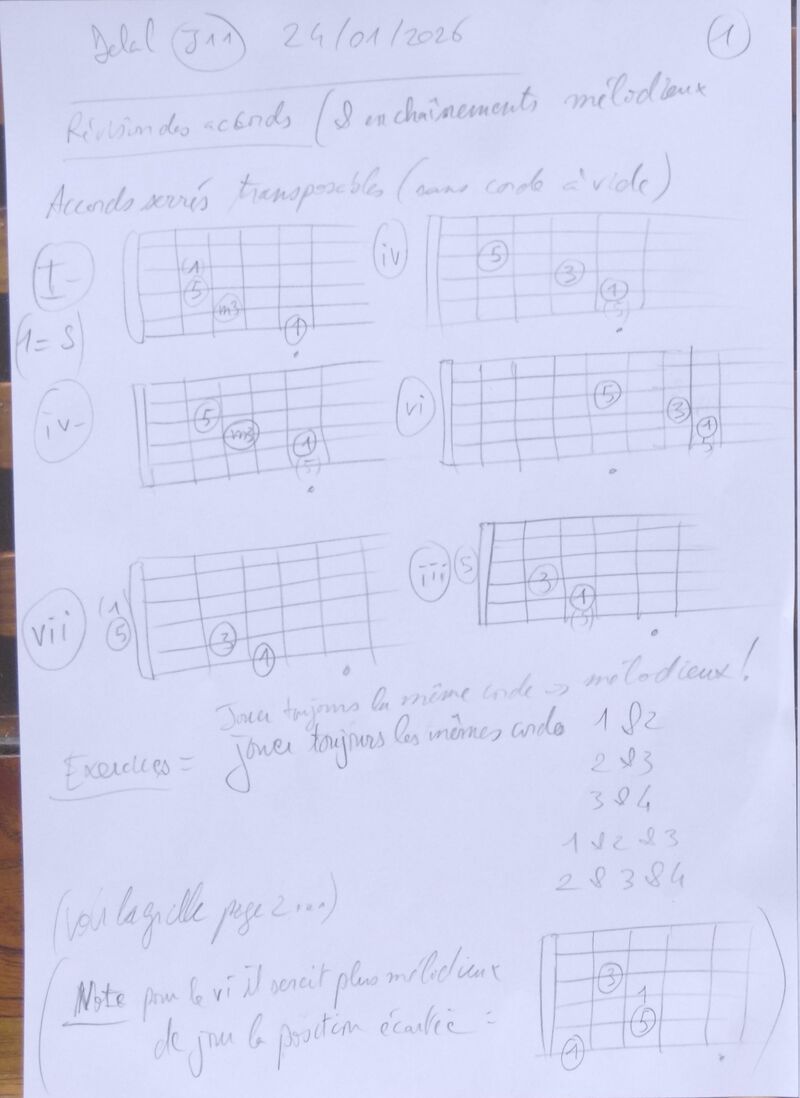 Delal J11 24/01/2026 1
Révision des accords (& enchaînements mélodieux
Accords serrés transposables (sans corde à vide)
I-
(1 = S)
1
5
m3
1
iv
5
3
1
(5)
iv-
5
m3
1
(5)
vi
5
3
1
5
vii
(1
5
3
1
iii
5
3
1
(5)
Jouer toujours la même corde => mélodieux!
Exercices = jouer toujours les mêmes corde 1 & 2
2 & 3
3 & 4
1 & 2 & 3
2 & 3 & 4
(voir la grille page 2....)
(Note pour le vi il serait plus mélodieux
de jouer la position écartée =
3
1
5
1
)